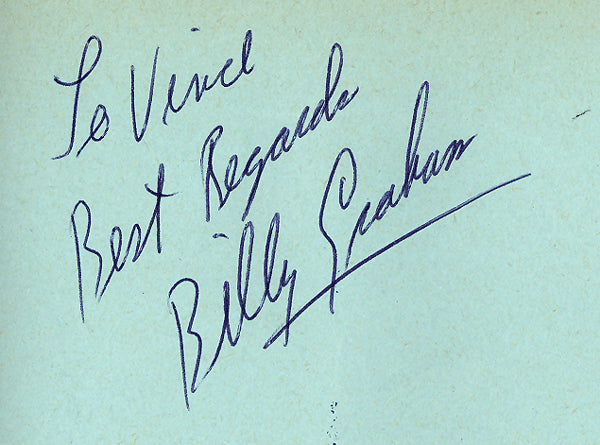 To Vince
Best Regards
Billy Graham